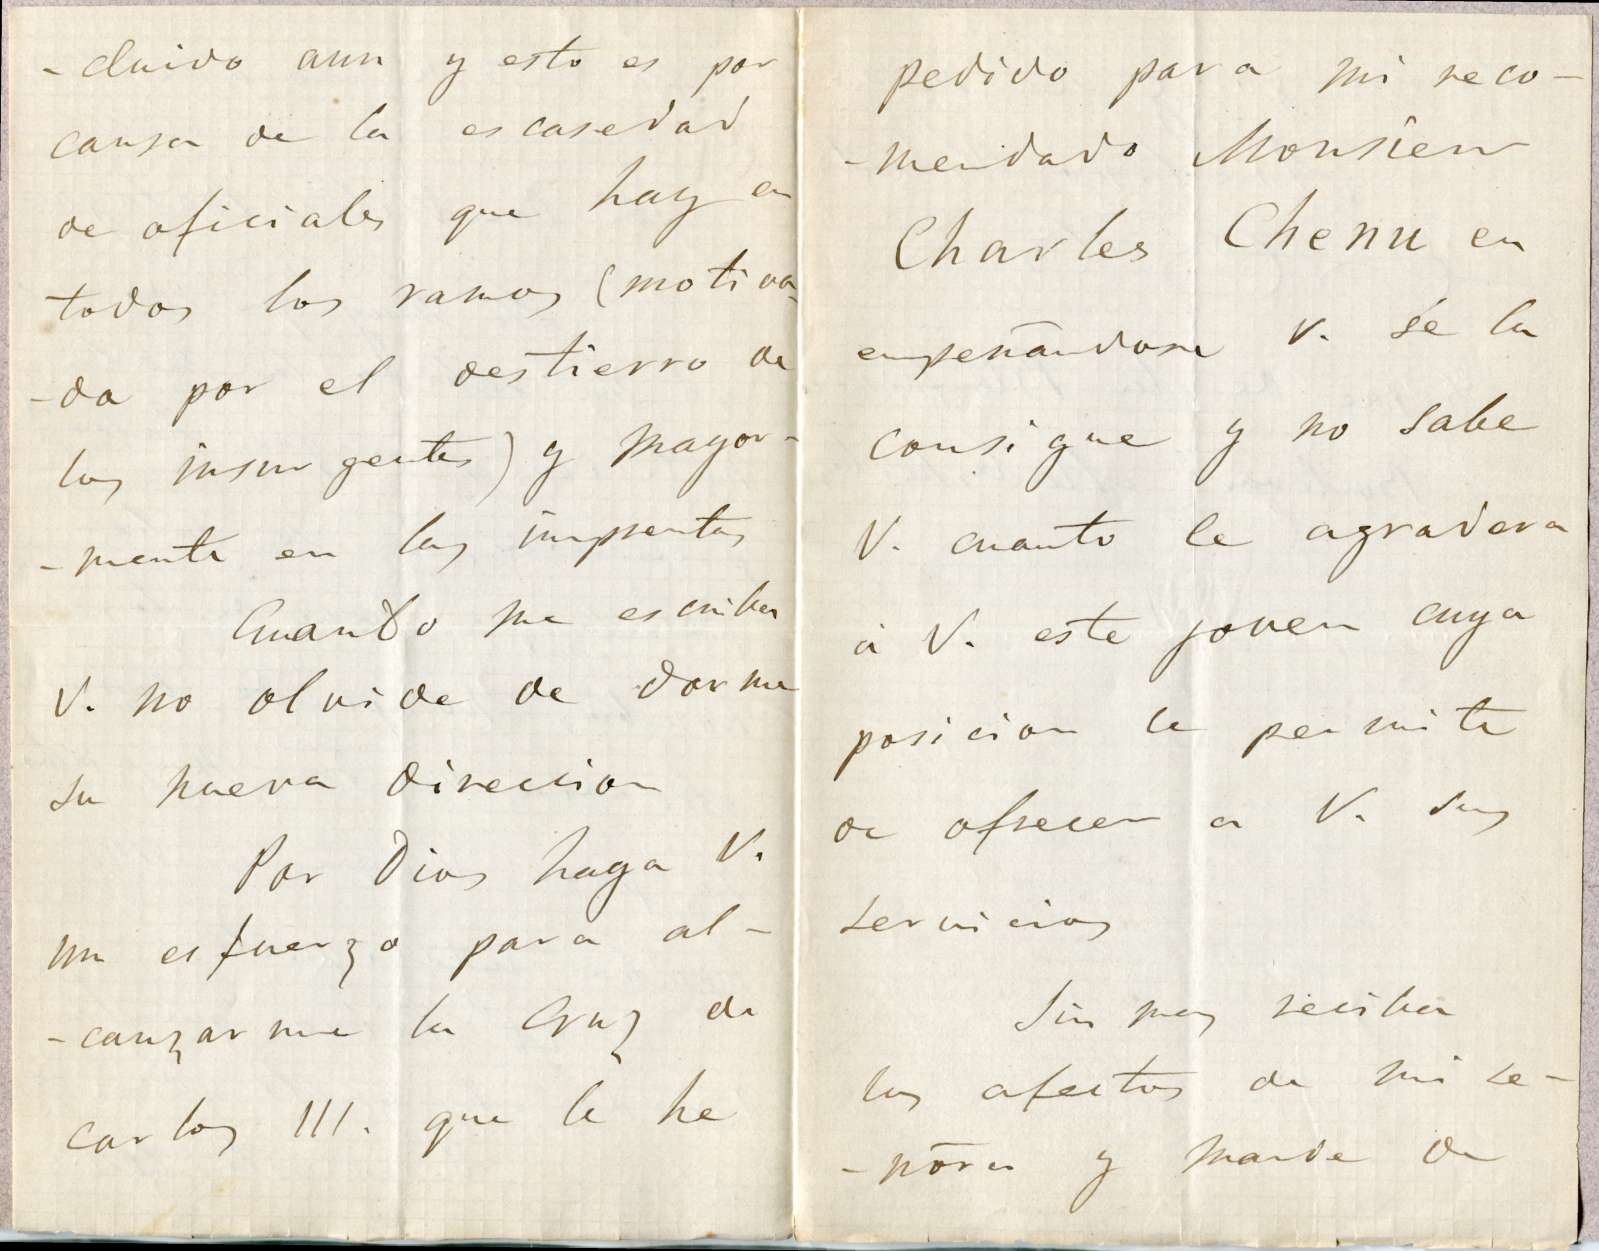 -cluido aun y esto es por
causa de la escasedad
de oficiales que hay en
todos los ramos (motiva-
-da por el destierro de
los insurgentes) y mayor-
-mente en las imprentas
Cuando me escriba
V. no olvide de darme
su nueva direccion
Por Dios haga V.
un esfuerzo para al-
-canzarme la Cruz de
Carlos III. que le he
pedido para mi reco-
-mendado Monsieur
Charles Chenu en
empeñandose V. se la
consigue y no sabe
V. cuanto le agradera
á V. este joven cuya
posicion le permite
de ofrecer a V. sus
servicios
Sin mas reciba
los afectos de mi se-
-ñora y mande de